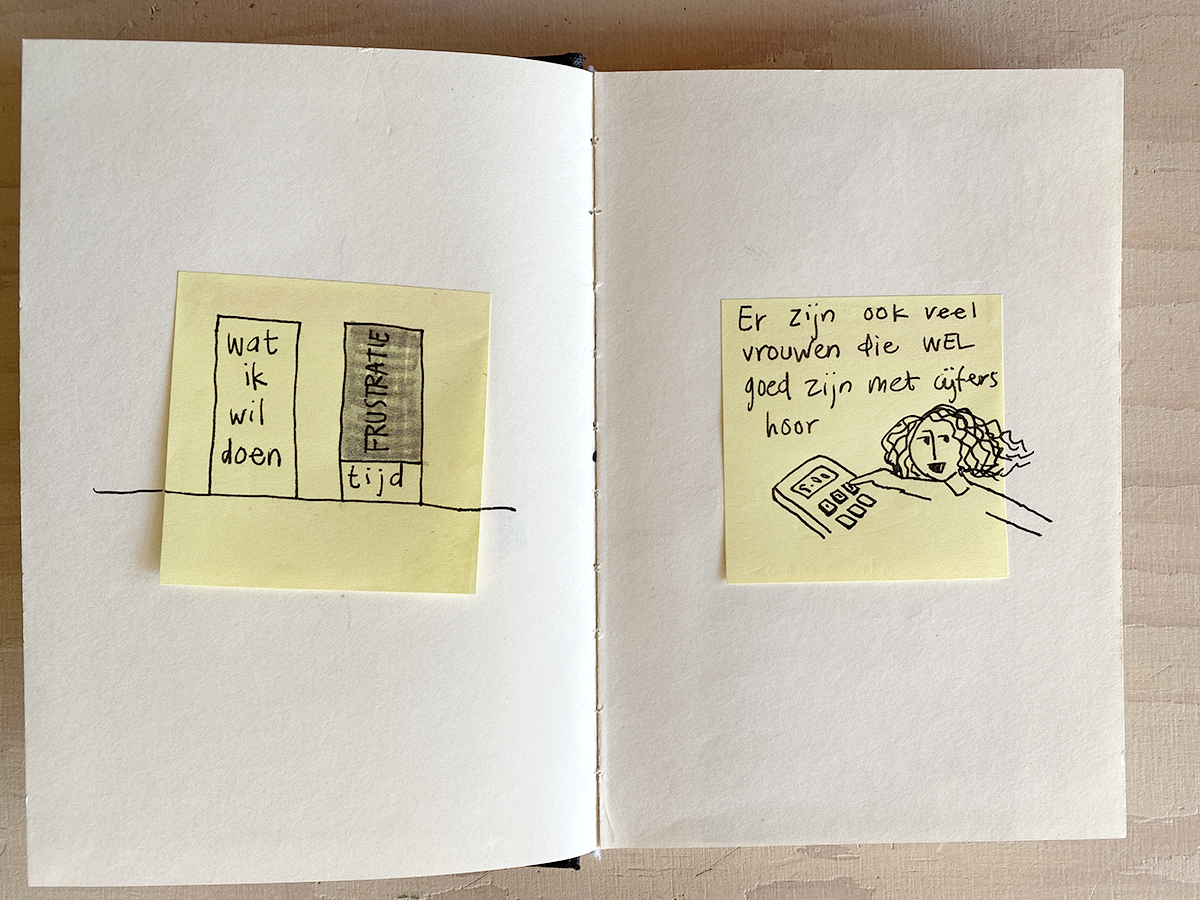 wat
ik
wil
doen
FRUSTRATIE
tijd
Er zijn ook veel
vrouwen die WEL
goed zijn met cijfers
hoor